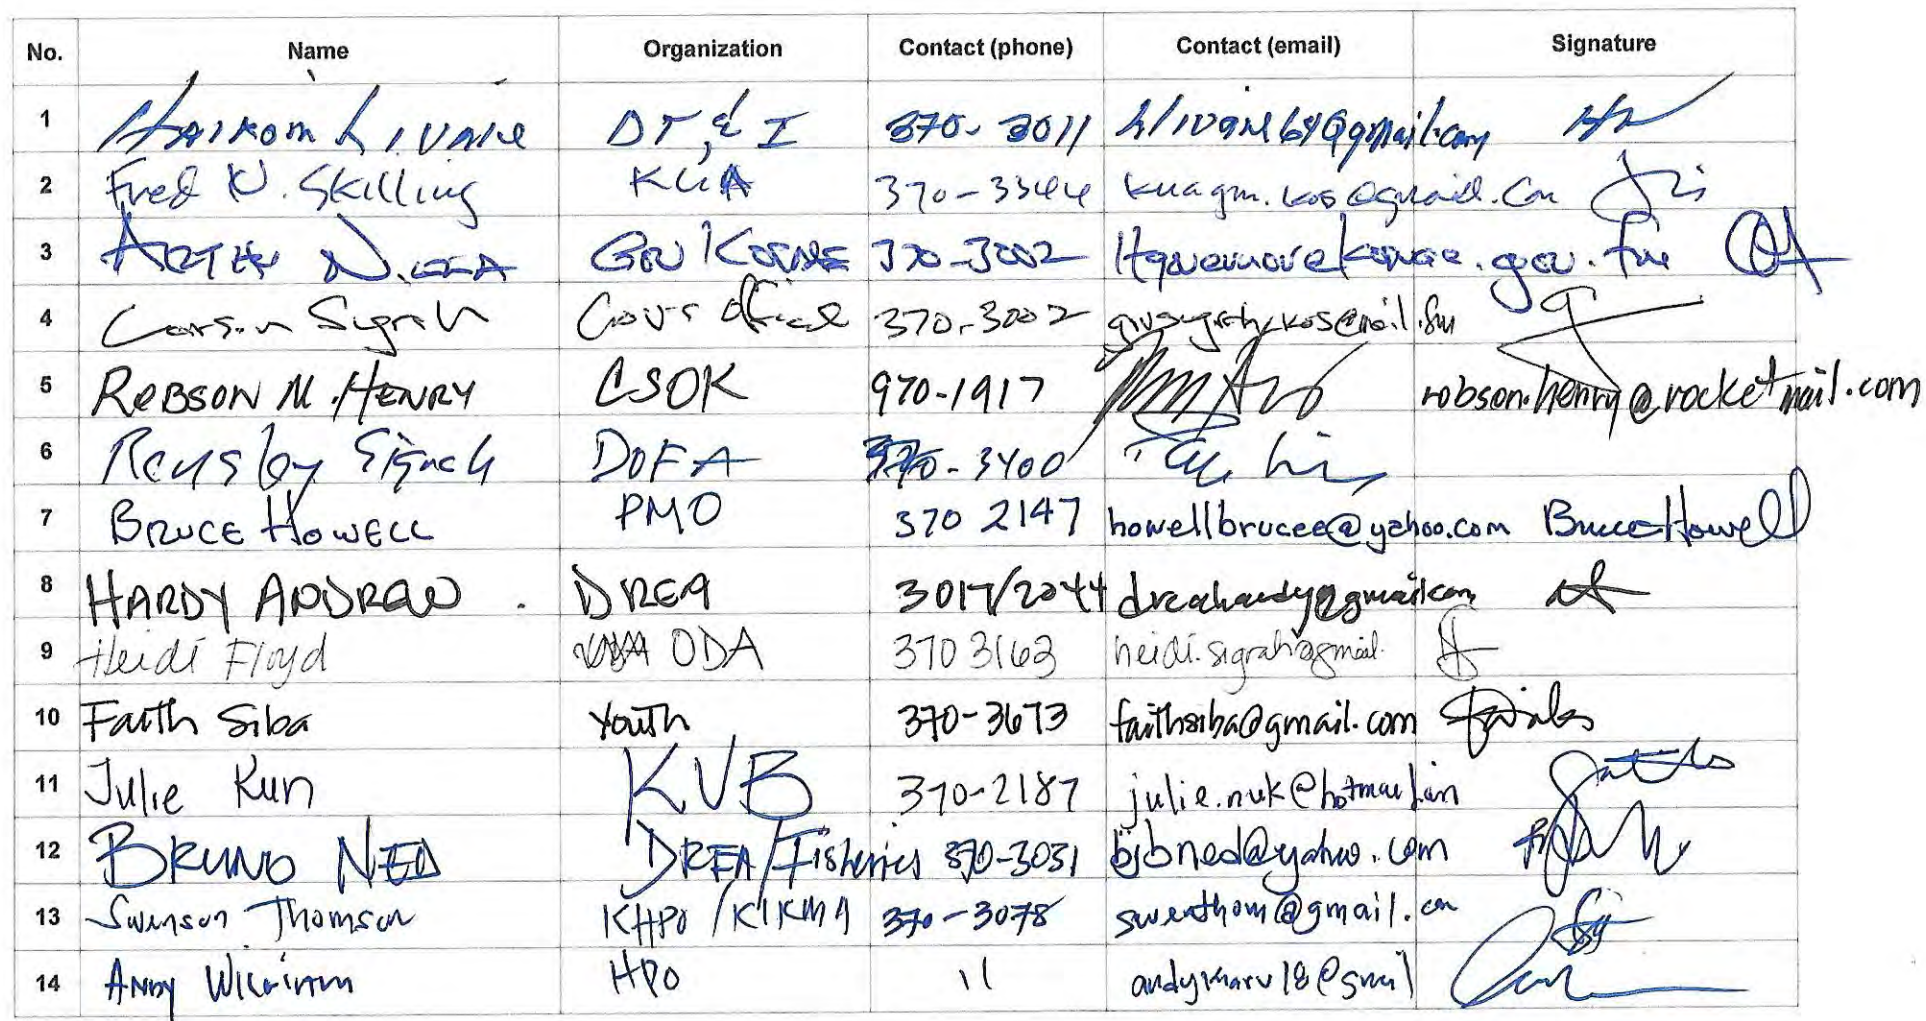 No. Name Organization Contact (phone) Contact (email) Signature
1 DT & I 370-3011
2 Fred N. Skilling KUA 370-3344 kuagm.kos@gmail.com
3 Gov Kosrae 370-3002
4 Carson Sigrah Gov's office 370-3002
5 ROBSON M. HENRY CSOK 970-1917 robson.henry@rocketmail.com
6 DOFA 370-3400
7 BRUCE HOWELL PMO 370 2147 howellbrucee@yahoo.com Bruce Howell
8 HARDY ANDREW. DREA 3017/2044 dreahardy@gmail.com
9 Heidi Floyd ODA 370 3163 heidi.sigrah@gmail.
10 Faith Siba Youth 370-3673 faithsiba@gmail.com
11 Julie Kun KVB 370-2187 julie.nuk@hotmail.com
12 BRUNO NED DREA/Fisheries 370-3031 bjbned@yahoo.com
13 Swenson Thomson KHPO/KIRMA 370-3078 swenthom@gmail.com
14 ANDY HPO 11